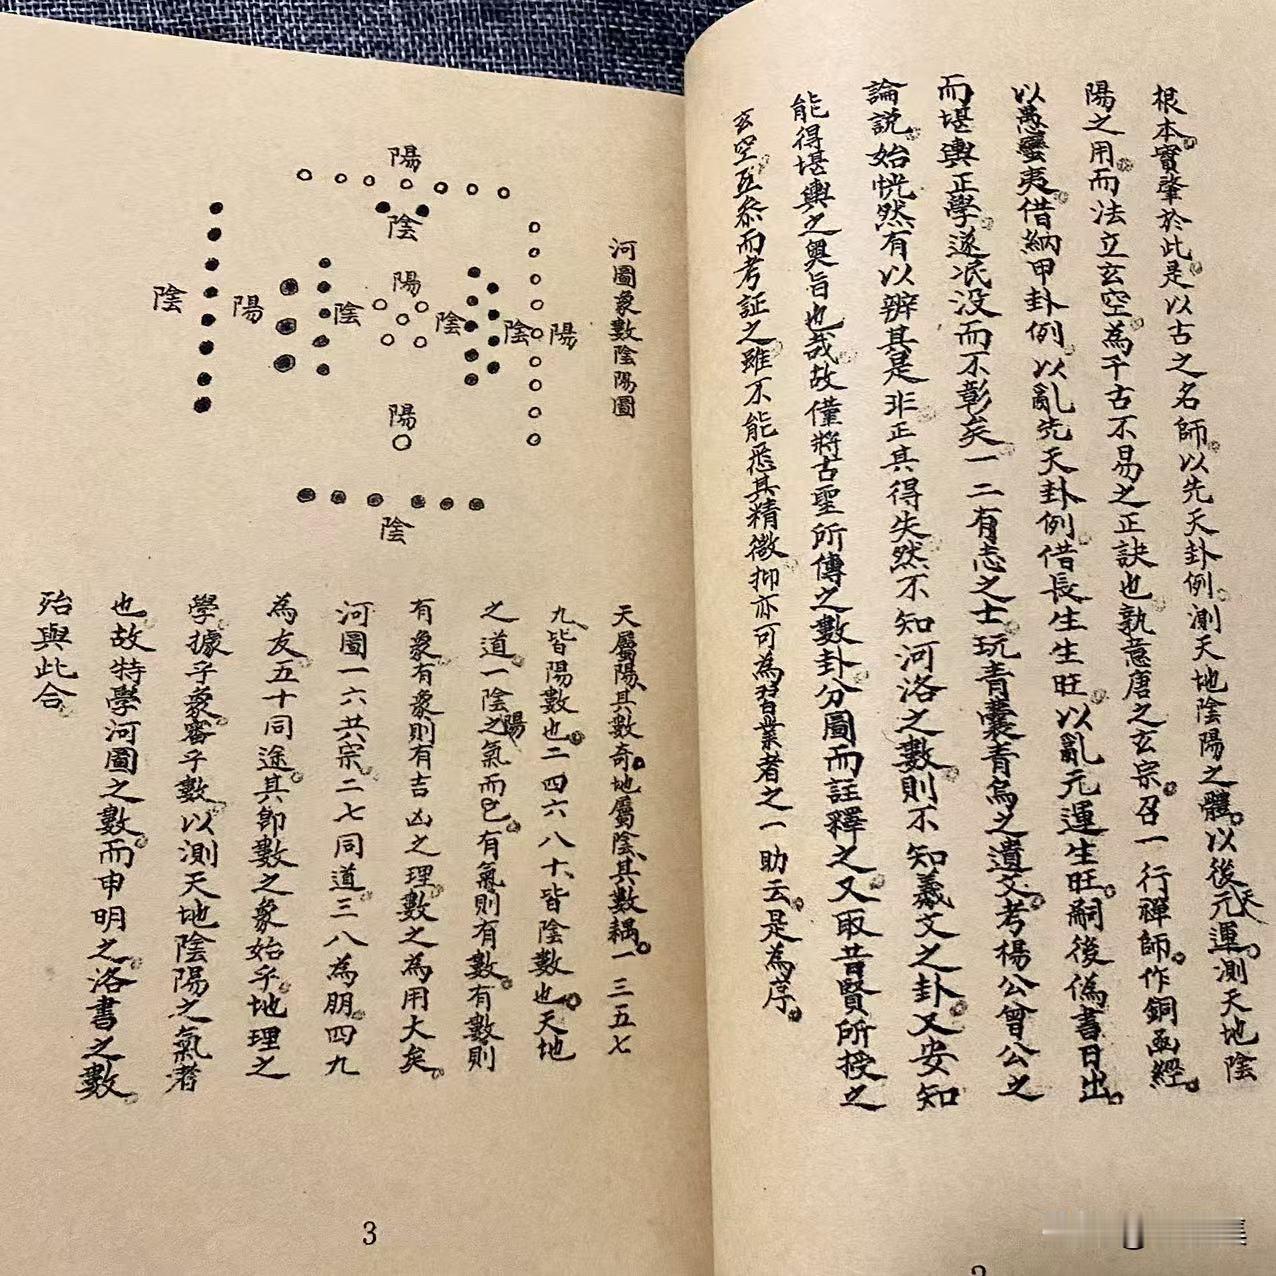 根本。實肇於此。是以古之名師。以先天卦例。測天地陰陽之體。以後天元運。測天地陰
陽之用。而法立玄空。為千古不易之正訣也。孰意唐之玄宗。召一行禪師。作銅函經。
以愚蠻夷。借納甲卦例。以亂先天卦例。借長生生旺。以亂元運生旺。嗣後偽書日出。
而堪輿正學。遂泯没而不彰矣。一二有志之士。玩青囊青烏之遺文。考楊公曾公之
論説。始恍然有以辨其是非。正其得失。然不知河洛之數。則不知羲文之卦。又安知
能得堪輿之奧旨也哉。故僅將古聖所傳之數卦分圖而註釋之。又取昔賢所授之
玄空。五叅而考証之。雖不能悉其精微。抑亦可為習業者之一助云。是為序。
河圖象數陰陽圖
陽
陰
陽
陰
陽
陰
陰
陰
陽
陽
陰
天屬陽、其數奇。地屬陰、其數耦。一三五七
九、皆陽數也。二四六八十、皆陰數也。天地
之道。一陰陽之氣而已。有氣則有數。有數則
有象。有象則有吉凶之理。數之為用大矣。
河圖一六共宗。二七同道。三八為朋。四九
為友。五十同途。其即數之象始乎。地理之
學。據乎象。審乎數。以測天地陰陽之氣者
也。故特學河圖之數。而申明之。洛書之數
殆與此合。
3
2